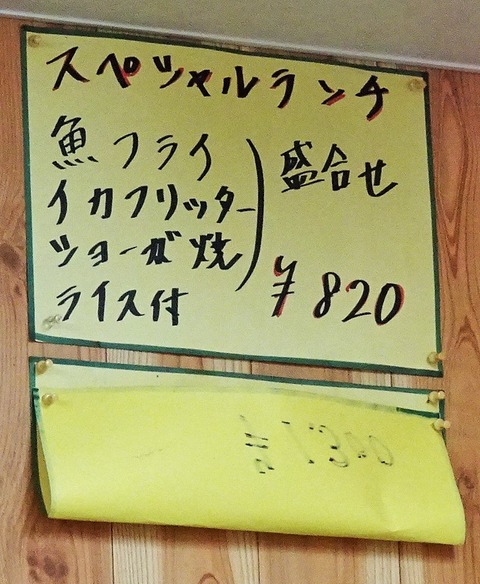 スペシャルランチ
魚フライ
イカフリッター
ショーガ焼
盛合せ
ライス付
¥820